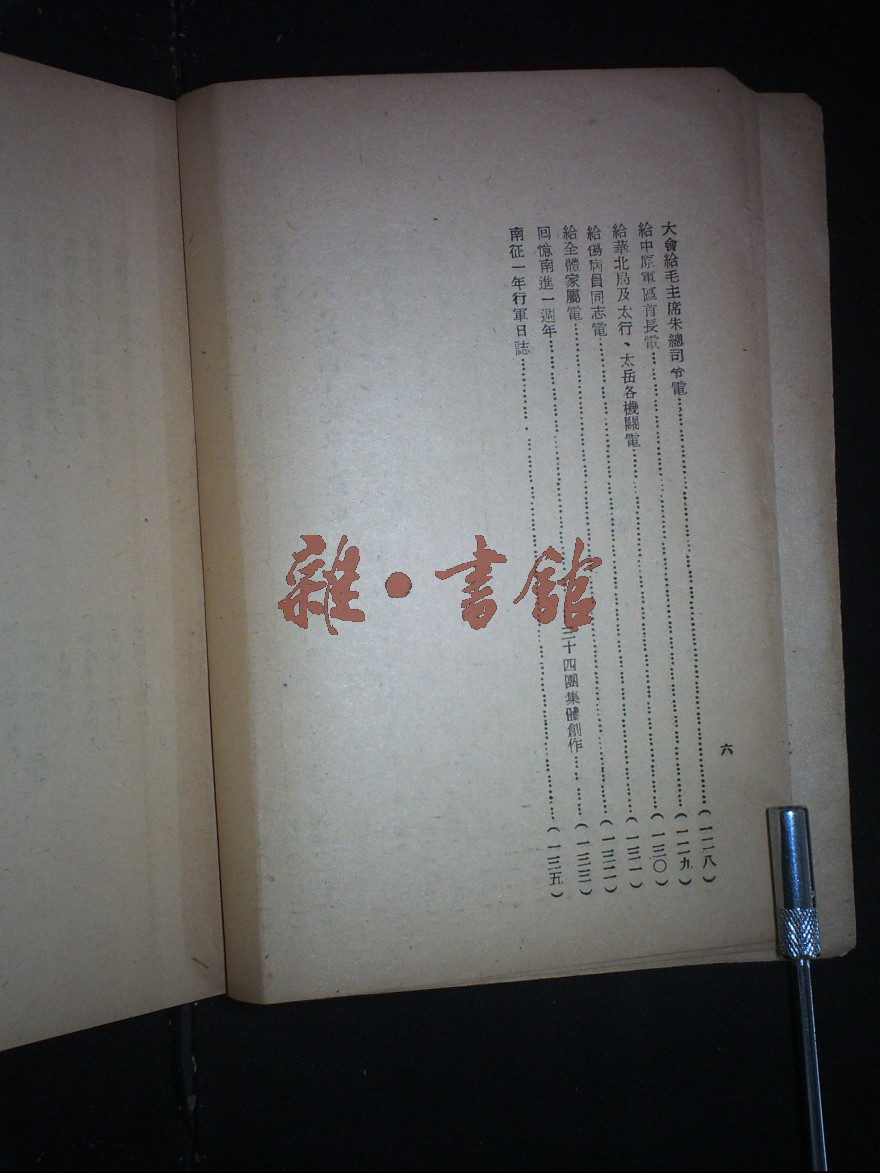 六
大會給毛主席朱總司令電……(一二八)
給中原軍區首長電……(一二九)
給華北局及太行、太岳各機關電……(一三〇)
給傷病員同志電……(一三一)
給全體家屬電……(一三二)
回憶南進一週年……三十四團集體創作……(一三三)
南征一年行軍日誌……(一三五)
雜·書館